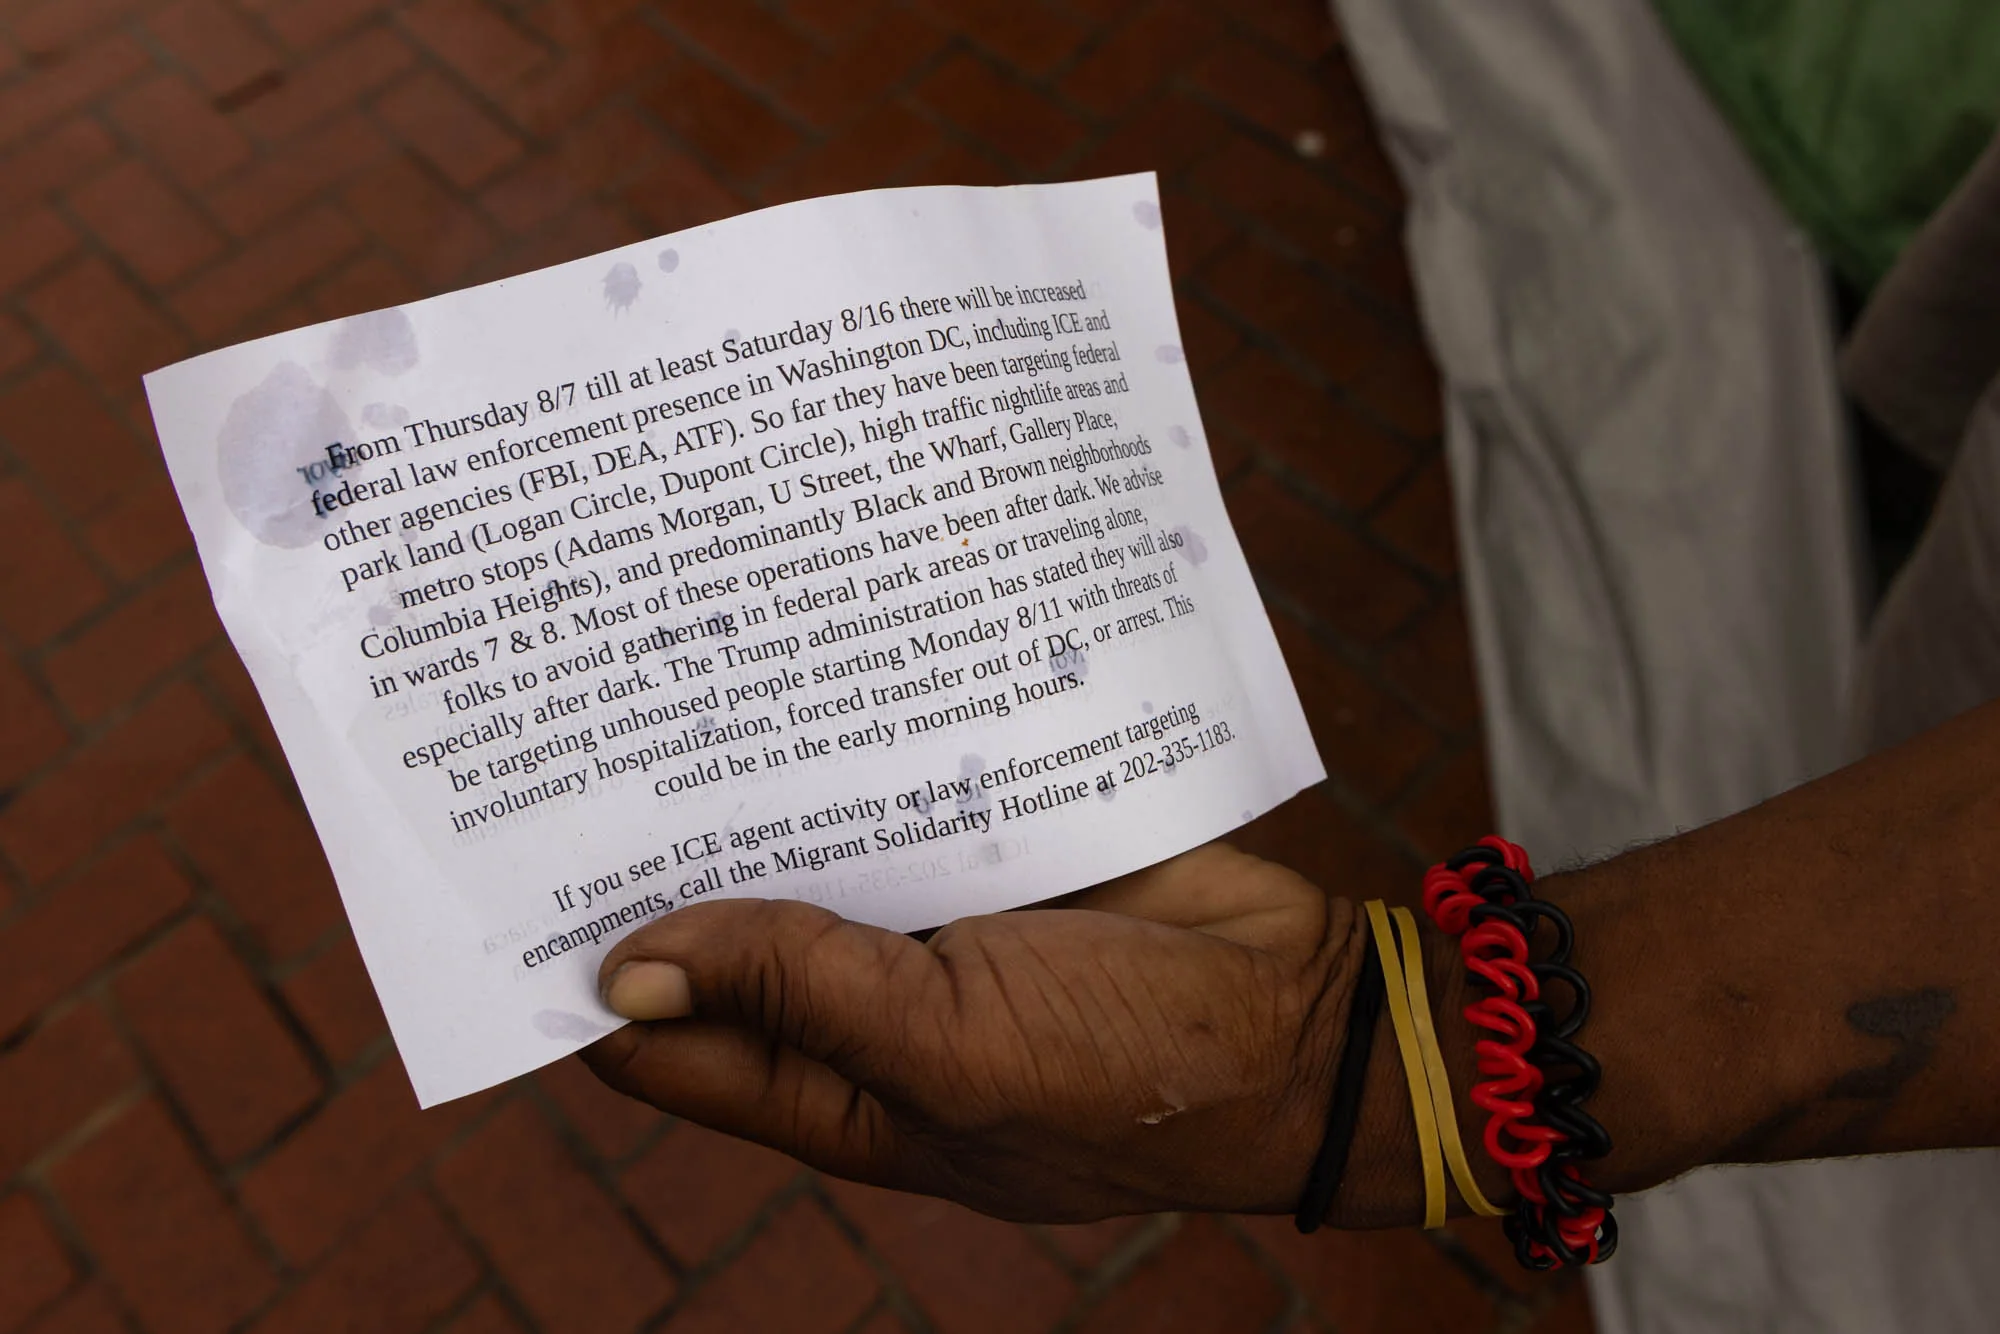 From Thursday 8/7 till at least Saturday 8/16 there will be increased
federal law enforcement presence in Washington DC, including ICE and
other agencies (FBI, DEA, ATF). So far they have been targeting federal
park land (Logan Circle, Dupont Circle), high traffic nightlife areas and
metro stops (Adams Morgan, U Street, the Wharf, Gallery Place,
Columbia Heights), and predominantly Black and Brown neighborhoods
in wards 7 & 8. Most of these operations have been after dark. We advise
folks to avoid gathering in federal park areas or traveling alone,
especially after dark. The Trump administration has stated they will also
be targeting unhoused people starting Monday 8/11 with threats of
involuntary hospitalization, forced transfer out of DC, or arrest. This
could be in the early morning hours.
If you see ICE agent activity or law enforcement targeting
encampments, call the Migrant Solidarity Hotline at 202-335-1183.